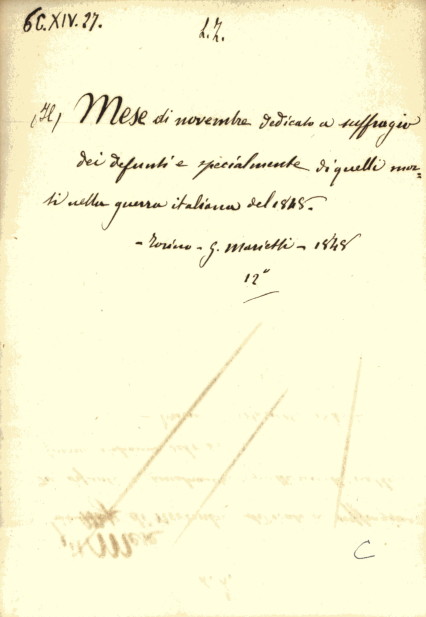 6C.XIV.27.
L.Z.
(Il) Mese di novembre dedicato a suffragio
dei defunti e specialmente di quelli mor=
ti nella guerra italiana del 1848.
- Torino - G. Marietti - 1848
12°
C